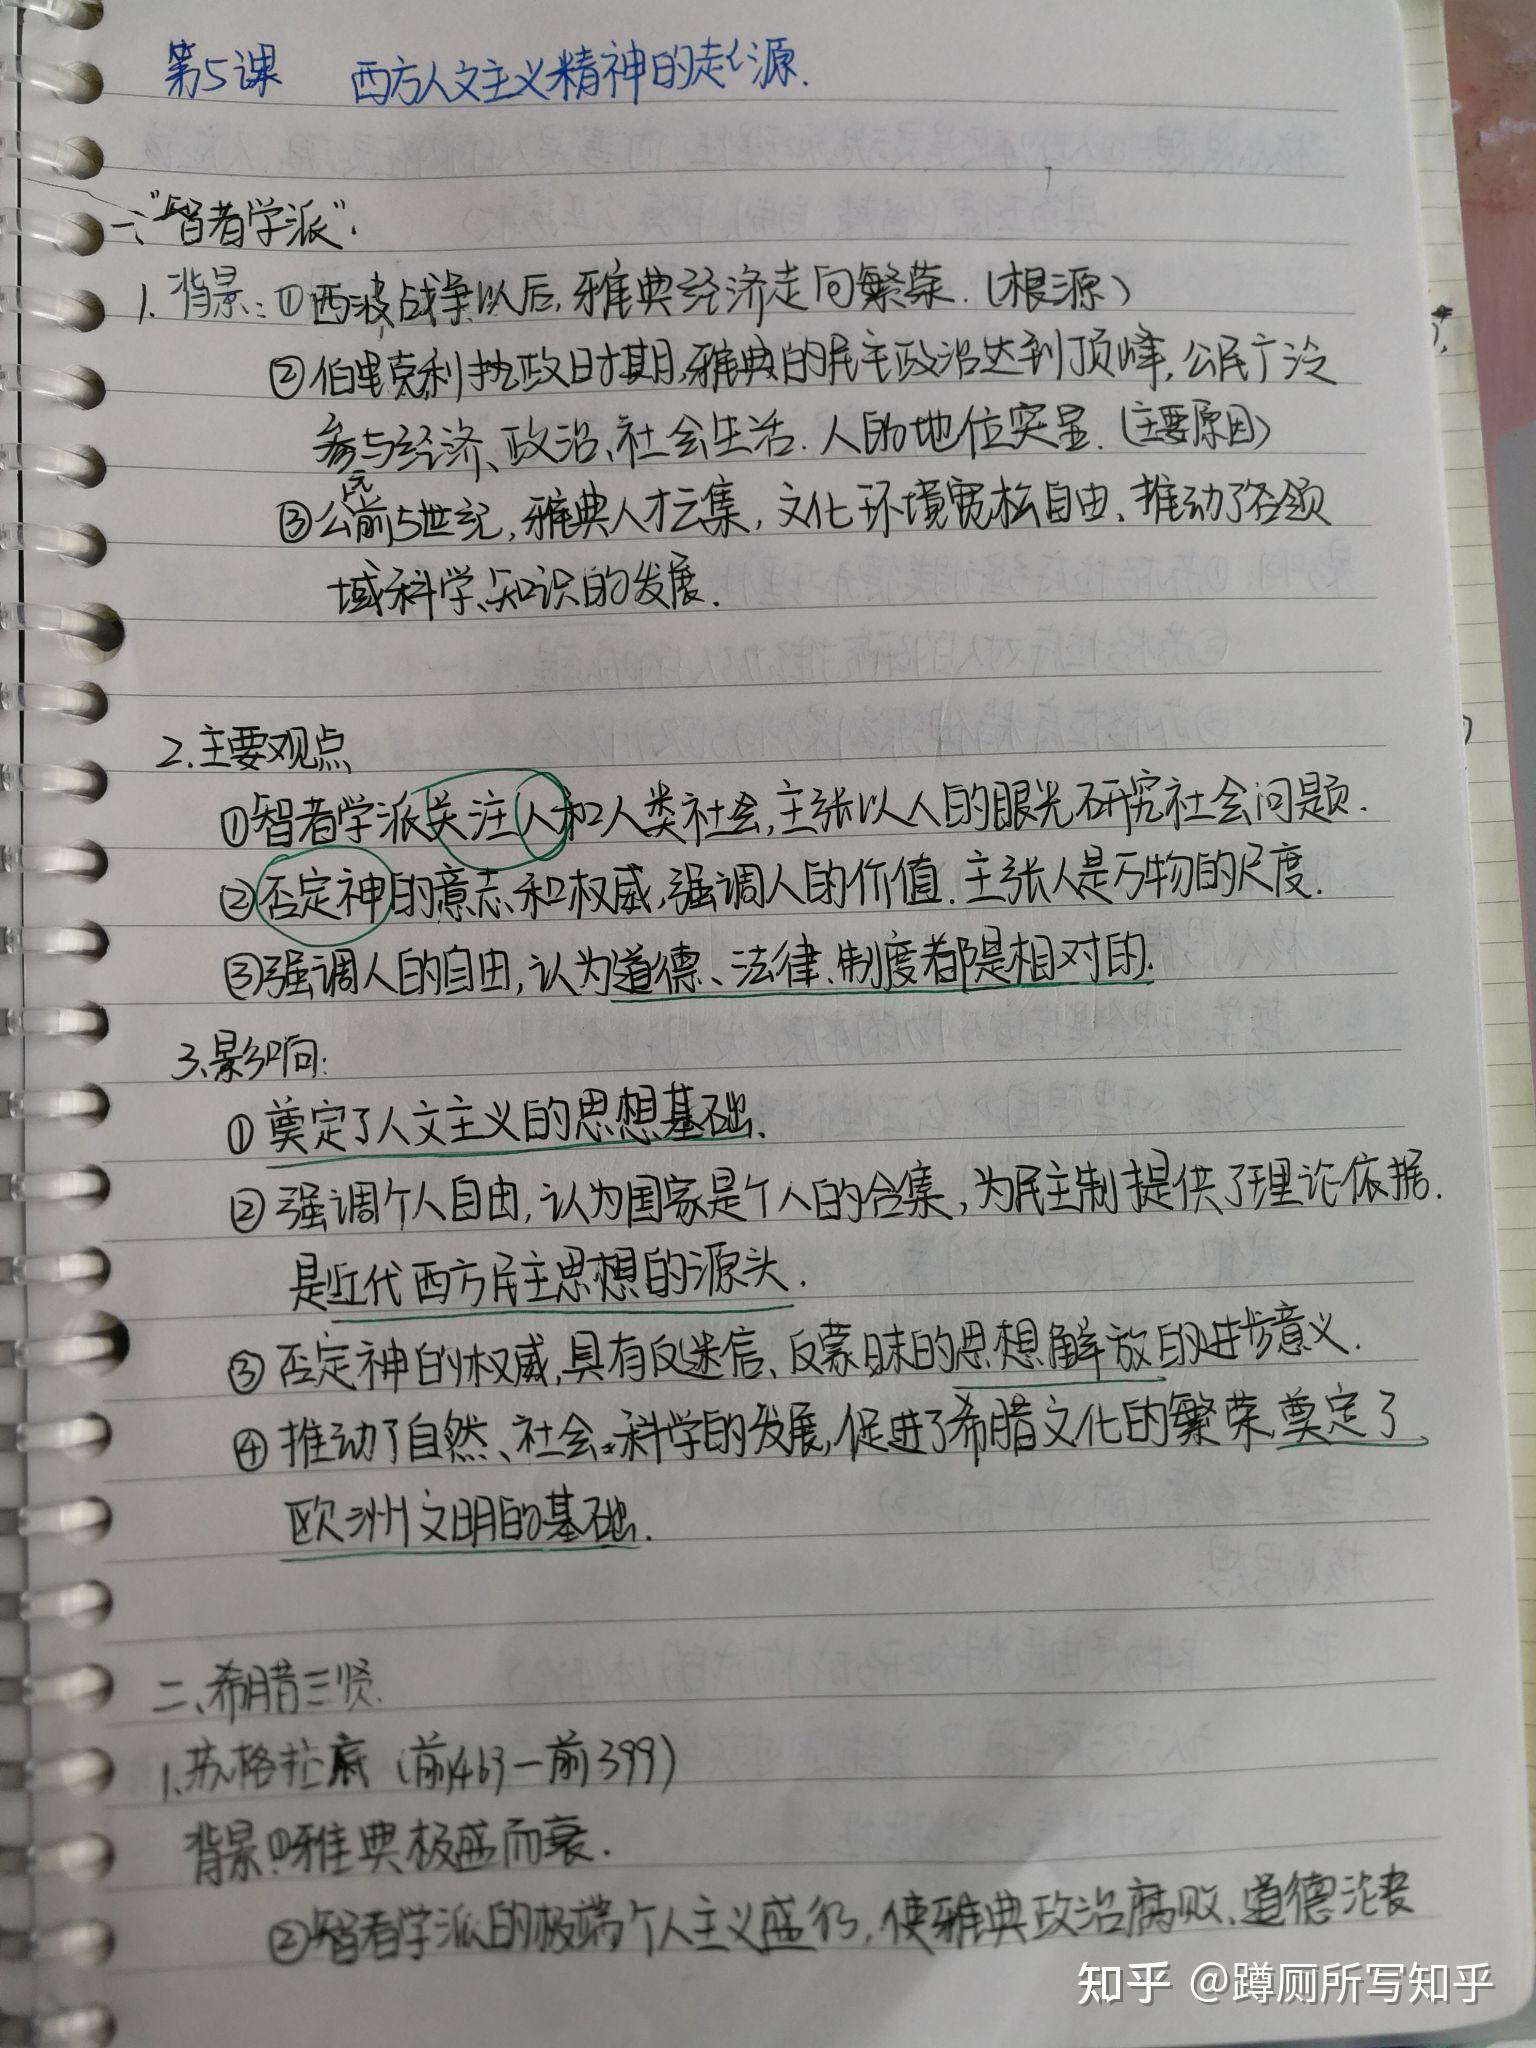 第5课 西方人文主义精神的起源.
一、“智者学派”.
1. 背景:①西波战争以后,雅典经济走向繁荣.(根源)
②伯里克利执政时期,雅典的民主政治达到顶峰,公民广泛
参与经济、政治、社会生活.人的地位突显.(主要原因)
③公元前5世纪,雅典人才云集,文化环境宽松自由、推动了各领
域科学、知识的发展.
2.主要观点
①智者学派关注人和人类社会,主张以人的眼光研究社会问题.
②否定神的意志和权威,强调人的价值.主张人是万物的尺度.
③强调人的自由,认为道德、法律、制度都是相对的.
3.影响:
①奠定了人文主义的思想基础.
②强调个人自由,认为国家是个人的合集,为民主制提供了理论依据.
是近代西方民主思想的源头.
③否定神的权威,具有反迷信、反蒙昧的思想解放的进步意义.
④推动了自然、社会科学的发展,促进了希腊文化的繁荣,奠定了
欧洲文明的基础.
二、希腊三贤.
1.苏格拉底(前469—前399)
背景:①雅典极盛而衰.
②智者学派的极端个人主义盛行,使雅典政治腐败、道德沦丧
知乎 @蹲厕所写知乎